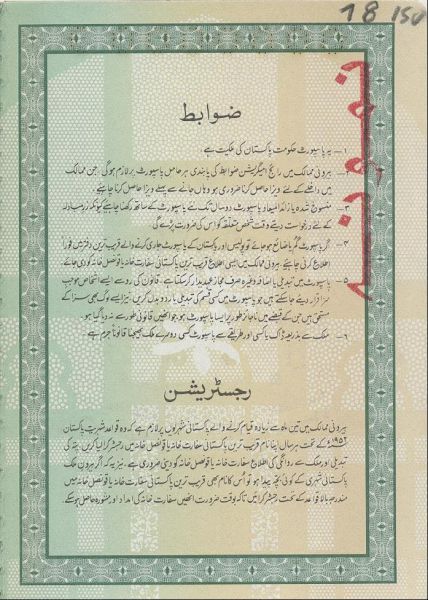 18 150
ضوابط
۱ — یہ پاسپورٹ حکومت پاکستان کی ملکیت ہے
۲ — بیرونی ممالک میں رائج امیگریشن ضوابط کی پابندی ہر حامل پاسپورٹ پر لازم ہوگی۔ جن ممالک
میں داخلے کے لئے ویزا حاصل کرنا ضروری ہو وہاں جانے سے پہلے ویزا حاصل کرنا چاہیئے۔
۳ — منسوخ شدہ یا زائد المیعاد پاسپورٹ دو سال تک نئے پاسپورٹ کے ساتھ رکھنا چاہیے کیونکہ زرمبادلہ
کے لئے درخواست دیتے وقت شخص متعلقہ کو اس کی ضرورت پڑے گی
۴ — اگر پاسپورٹ گم یا ضائع ہو جائے تو پولیس اور پاکستان کے پاسپورٹ جاری کرنے والے قریب ترین دفتر میں فوراً
اطلاع کرنی چاہیئے۔ بیرونی ممالک میں ایسی اطلاع قریب ترین پاکستانی سفارت خانہ یا قونصل خانہ کو دی جائے۔
۵ — پاسپورٹ میں تبدیلی یا اضافہ وغیرہ صرف مجاز عہدیدار کر سکتا ہے۔ قانون کی رو سے ایسے اشخاص موجب
سزا قرار دیئے جا سکتے ہیں جو پاسپورٹ میں کسی قسم کی تبدیلی یا ردوبدل کریں۔ نیز ایسے لوگ بھی سزا کے
مستحق ہیں جن کے قبضے میں ناجائز طور پر ایسا پاسپورٹ ہو، جو انھیں قانونی طور سے نہ دیا گیا ہو۔
۶ — ملک سے بذریعہ ڈاک یا کسی اور طریقے سے پاسپورٹ کسی دوسرے ملک بھیجنا قانوناً جرم ہے۔
رجسٹریشن
بیرونی ممالک میں تین ماہ سے زیادہ قیام کرنے والے پاکستانی شہریوں پر لازم ہے کہ وہ قواعد شہریت پاکستان
۱۹۵۲ء کے تحت ہر سال اپنا نام قریب ترین پاکستانی سفارت خانہ یا قونصل خانہ میں رجسٹر کرا لیا کریں۔ پتہ کی
تبدیلی اور ملک سے روانگی کی اطلاع سفارت خانہ یا قونصل خانہ کو دینی ضروری ہے۔ نیز یہ کہ اگر بیرون ملک
پاکستانی شہری کے کوئی بچہ پیدا ہو تو اُس کا نام بھی قریب ترین پاکستانی سفارت خانہ یا قونصل خانہ میں
مندرجہ بالا قواعد کے تحت رجسٹر کرائیں تاکہ بوقت ضرورت انھیں سفارت خانہ کی امداد اور مشورہ حاصل ہو سکے۔